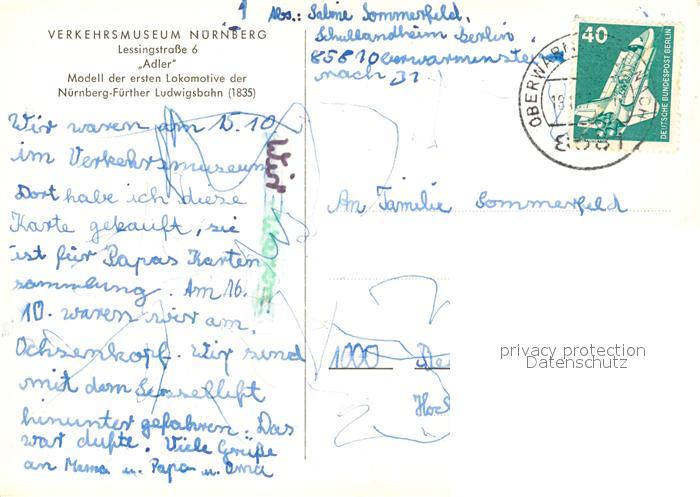 VERKEHRSMUSEUM NÜRNBERG
Lessingstraße 6
„Adler"
Modell der ersten Lokomotive der
Nürnberg-Fürther Ludwigsbahn (1835)
Wir waren am 15.10.
im Verkehrsmuseum
Dort habe ich diese
Karte gekauft, sie
ist für Papas Karten
sammlung. Am 16.
10. waren wir am
Ochsenkopf. Wir sind
mit dem Sessellift
hinunter gefahren. Das
war dufte. Viele Grüße
an Mama u. Papa u. Oma
Abs.: Sabine Sommerfeld,
Schullandheim Berlin,
8581 Oberwarmenstei
nach 31
40
DEUTSCHE BUNDESPOST BERLIN
OBERWARM
8581
An Familie Sommerfeld
1000
privacy protection
Datenschutz